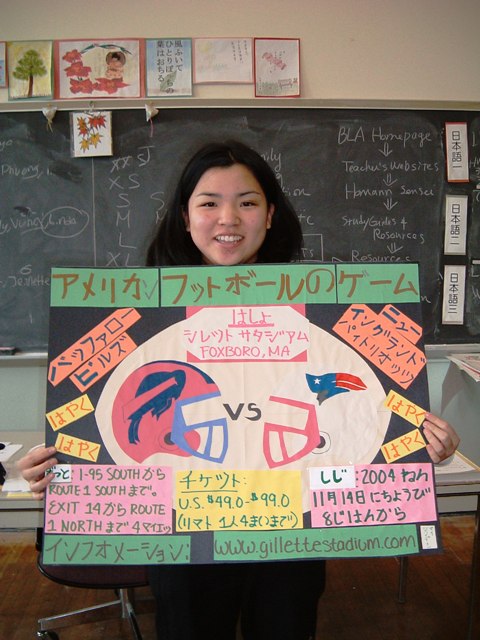 風ふいて
ひとりぼっちの
葉はおちる
BLA Homepage
Teacher's Websites
Homann Sensei
Study Guides &
Resources
Resources
日本語一
日本語二
日本語三
XX
J
XS
S
M
L
XL
アメリカン フットボールのゲーム
はしょ
シレット サタジアム
FOXBORO, MA
バッファロー
ビルズ
ニュー
イングランド
ペイトリオッツ
はやく
はやく
はやく
はやく
VS
I-95 SOUTHから
ROUTE 1 SOUTHまで。
EXIT 14からROUTE
1 NORTHまで4マイッ
チケット:
U.S. $49.0-$99.0
(リマト 1人4まいまで)
しじ:2004ねん
11月14日にちようび
8じはんから
インフオメーション:
www.gillettestadium.com